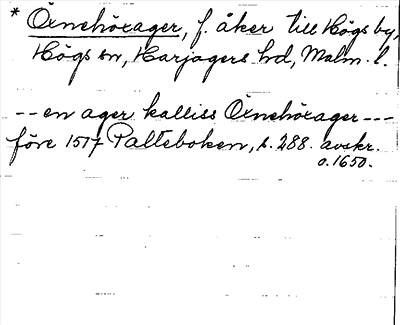 * Örnehörager, f. åker till Högs by,
Högs sn, Harjagers hd, Malm. l.
-- en ager kalliss Örnehörager ---
före 1517 Palteboken, s. 288. avskr.
o. 1650.